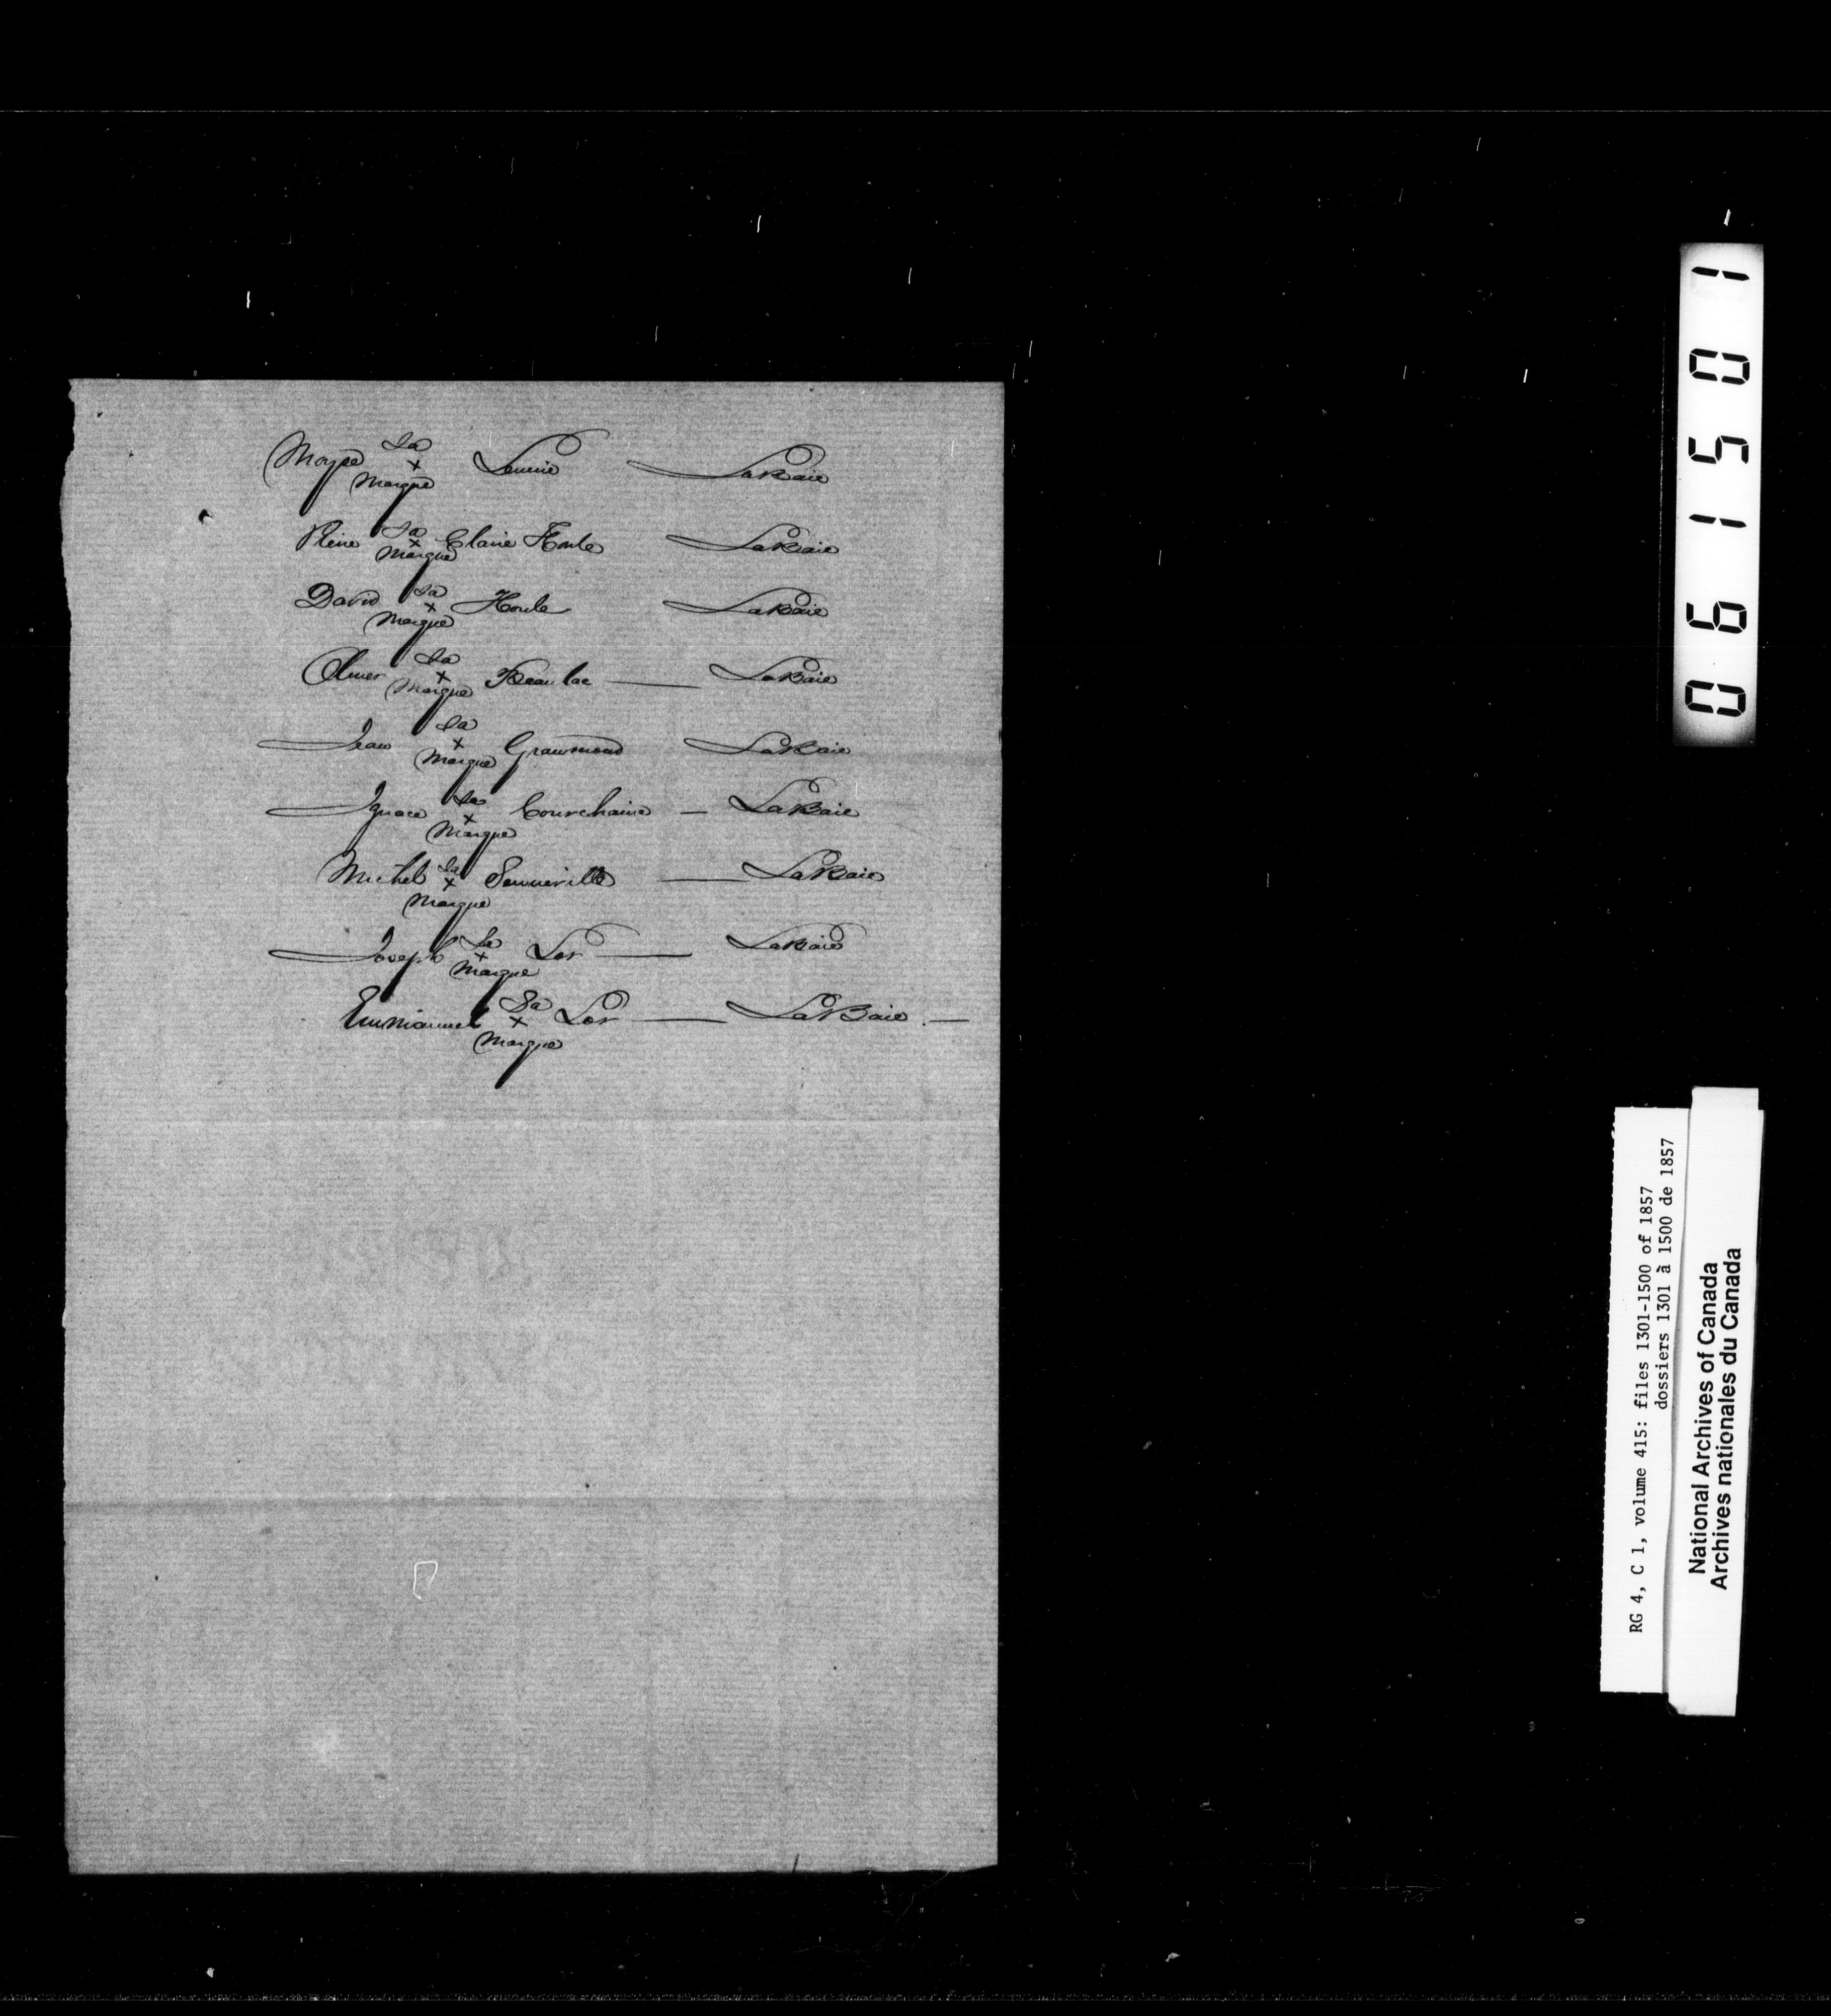 Moyse Sa x Marque Lemire LaBaie
Pierre Sa x Marque Claire Houle LaBaie
David Sa x Marque Houle LaBaie
Olivier Sa x Marque Beaulac — LaBaie
Jean Sa x Marque Grammond LaBaie
Ignace Sa x Marque Courchaine — LaBaie
Michel Sa x Marque Senneville — LaBaie
Joseph Sa x Marque Lor — LaBaie
Emmanuel Sa x Marque Lor — LaBaie . —
061501
RG 4, C 1, volume 415: files 1301-1500 of 1857
dossiers 1301 à 1500 de 1857
National Archives of Canada
Archives nationales du Canada